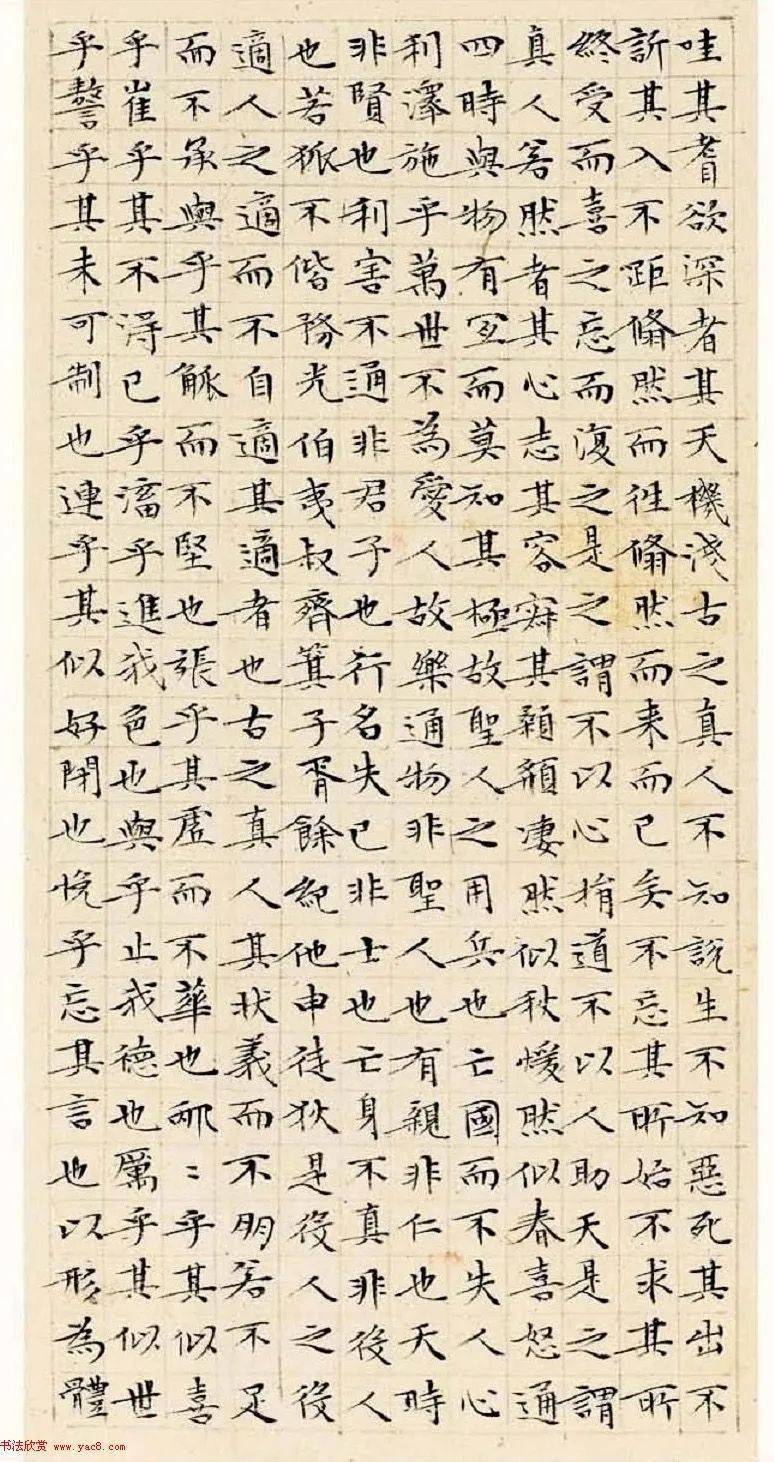 哇其耆欲深者其天機淺古之真人不知說生不知惡死其出不
訢其入不距翛然而往翛然而来而已矣不忘其所始不求其所
終受而喜之忘而復之是之謂不以心揖道不以人助天是之謂
真人若然者其心志其容寂其顙頯凄然似秋煖然似春喜怒通
四時與物有宜而莫知其極故聖人之用兵也亡國而不失人心
利澤施乎萬世不為愛人故樂通物非聖人也有親非仁也天時
非賢也利害不通非君子也行名失己非士也亡身不真非役人
也若狐不偕務光伯夷叔齊箕子胥餘紀他申徒狄是役人之役
適人之適而不自適其適者也古之真人其狀義而不朋若不足
而不承與乎其觚而不堅也張乎其虛而不華也邴〻乎其似喜
乎崔乎其不得已乎滀乎進我色也與乎止我德也厲乎其似世
乎謷乎其未可制也連乎其似好閉也悗乎忘其言也以形為體
书法欣赏 www.yac8.com